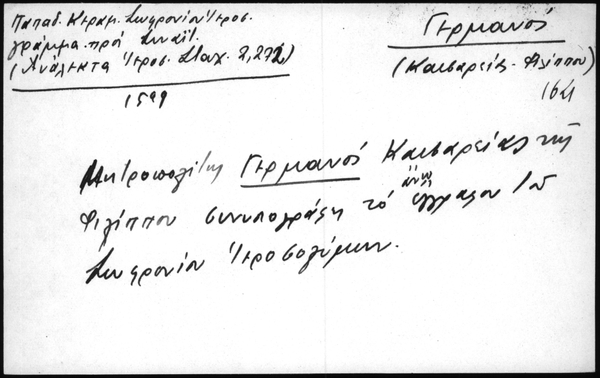 Παπαδ. Κεραμ. Σωφρονίου Ἱεροσ.
γράμμα πρό Σιναΐτ.
(Ἀνάλεκτα Ἱεροσ. Σταχ. 2,272)
1599
Γερμανός
(Καισαρείας - Φιλίππου)
1621
Μητροπολίτης Γερμανός Καισαρείας τῆς
ἄνω
Φιλίππου συνυπογράφει τό ἔγγραφον τοῦ
Σωφρονίου Ἱεροσολύμων.